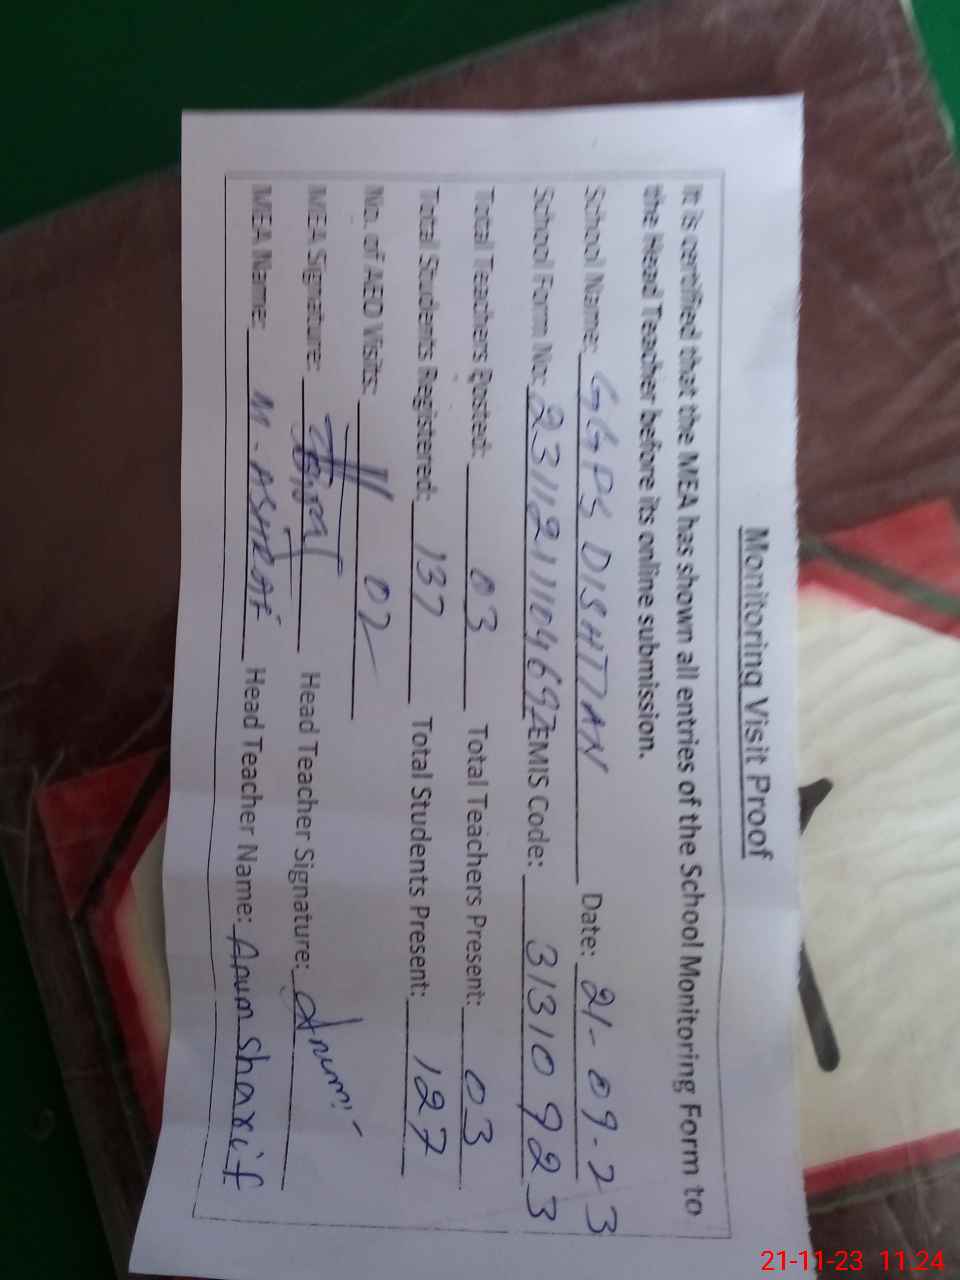 Monitoring Visit Proof
It is certified that the MEA has shown all entries of the School Monitoring Form to
the Head Teacher before its online submission.
School Name: GGPS DISHTIAN Date: 21-09-23
School Form No: 2311211104692 EMIS Code: 31310923
Total Teachers Posted: 03 Total Teachers Present: 03
Total Students Registered: 137 Total Students Present: 127
No. of AEO Visits: 02
MEA Signature: Head Teacher Signature: Anum
MEA Name: M-ASHRAF Head Teacher Name: Anum sharif
21-11-23 11.24